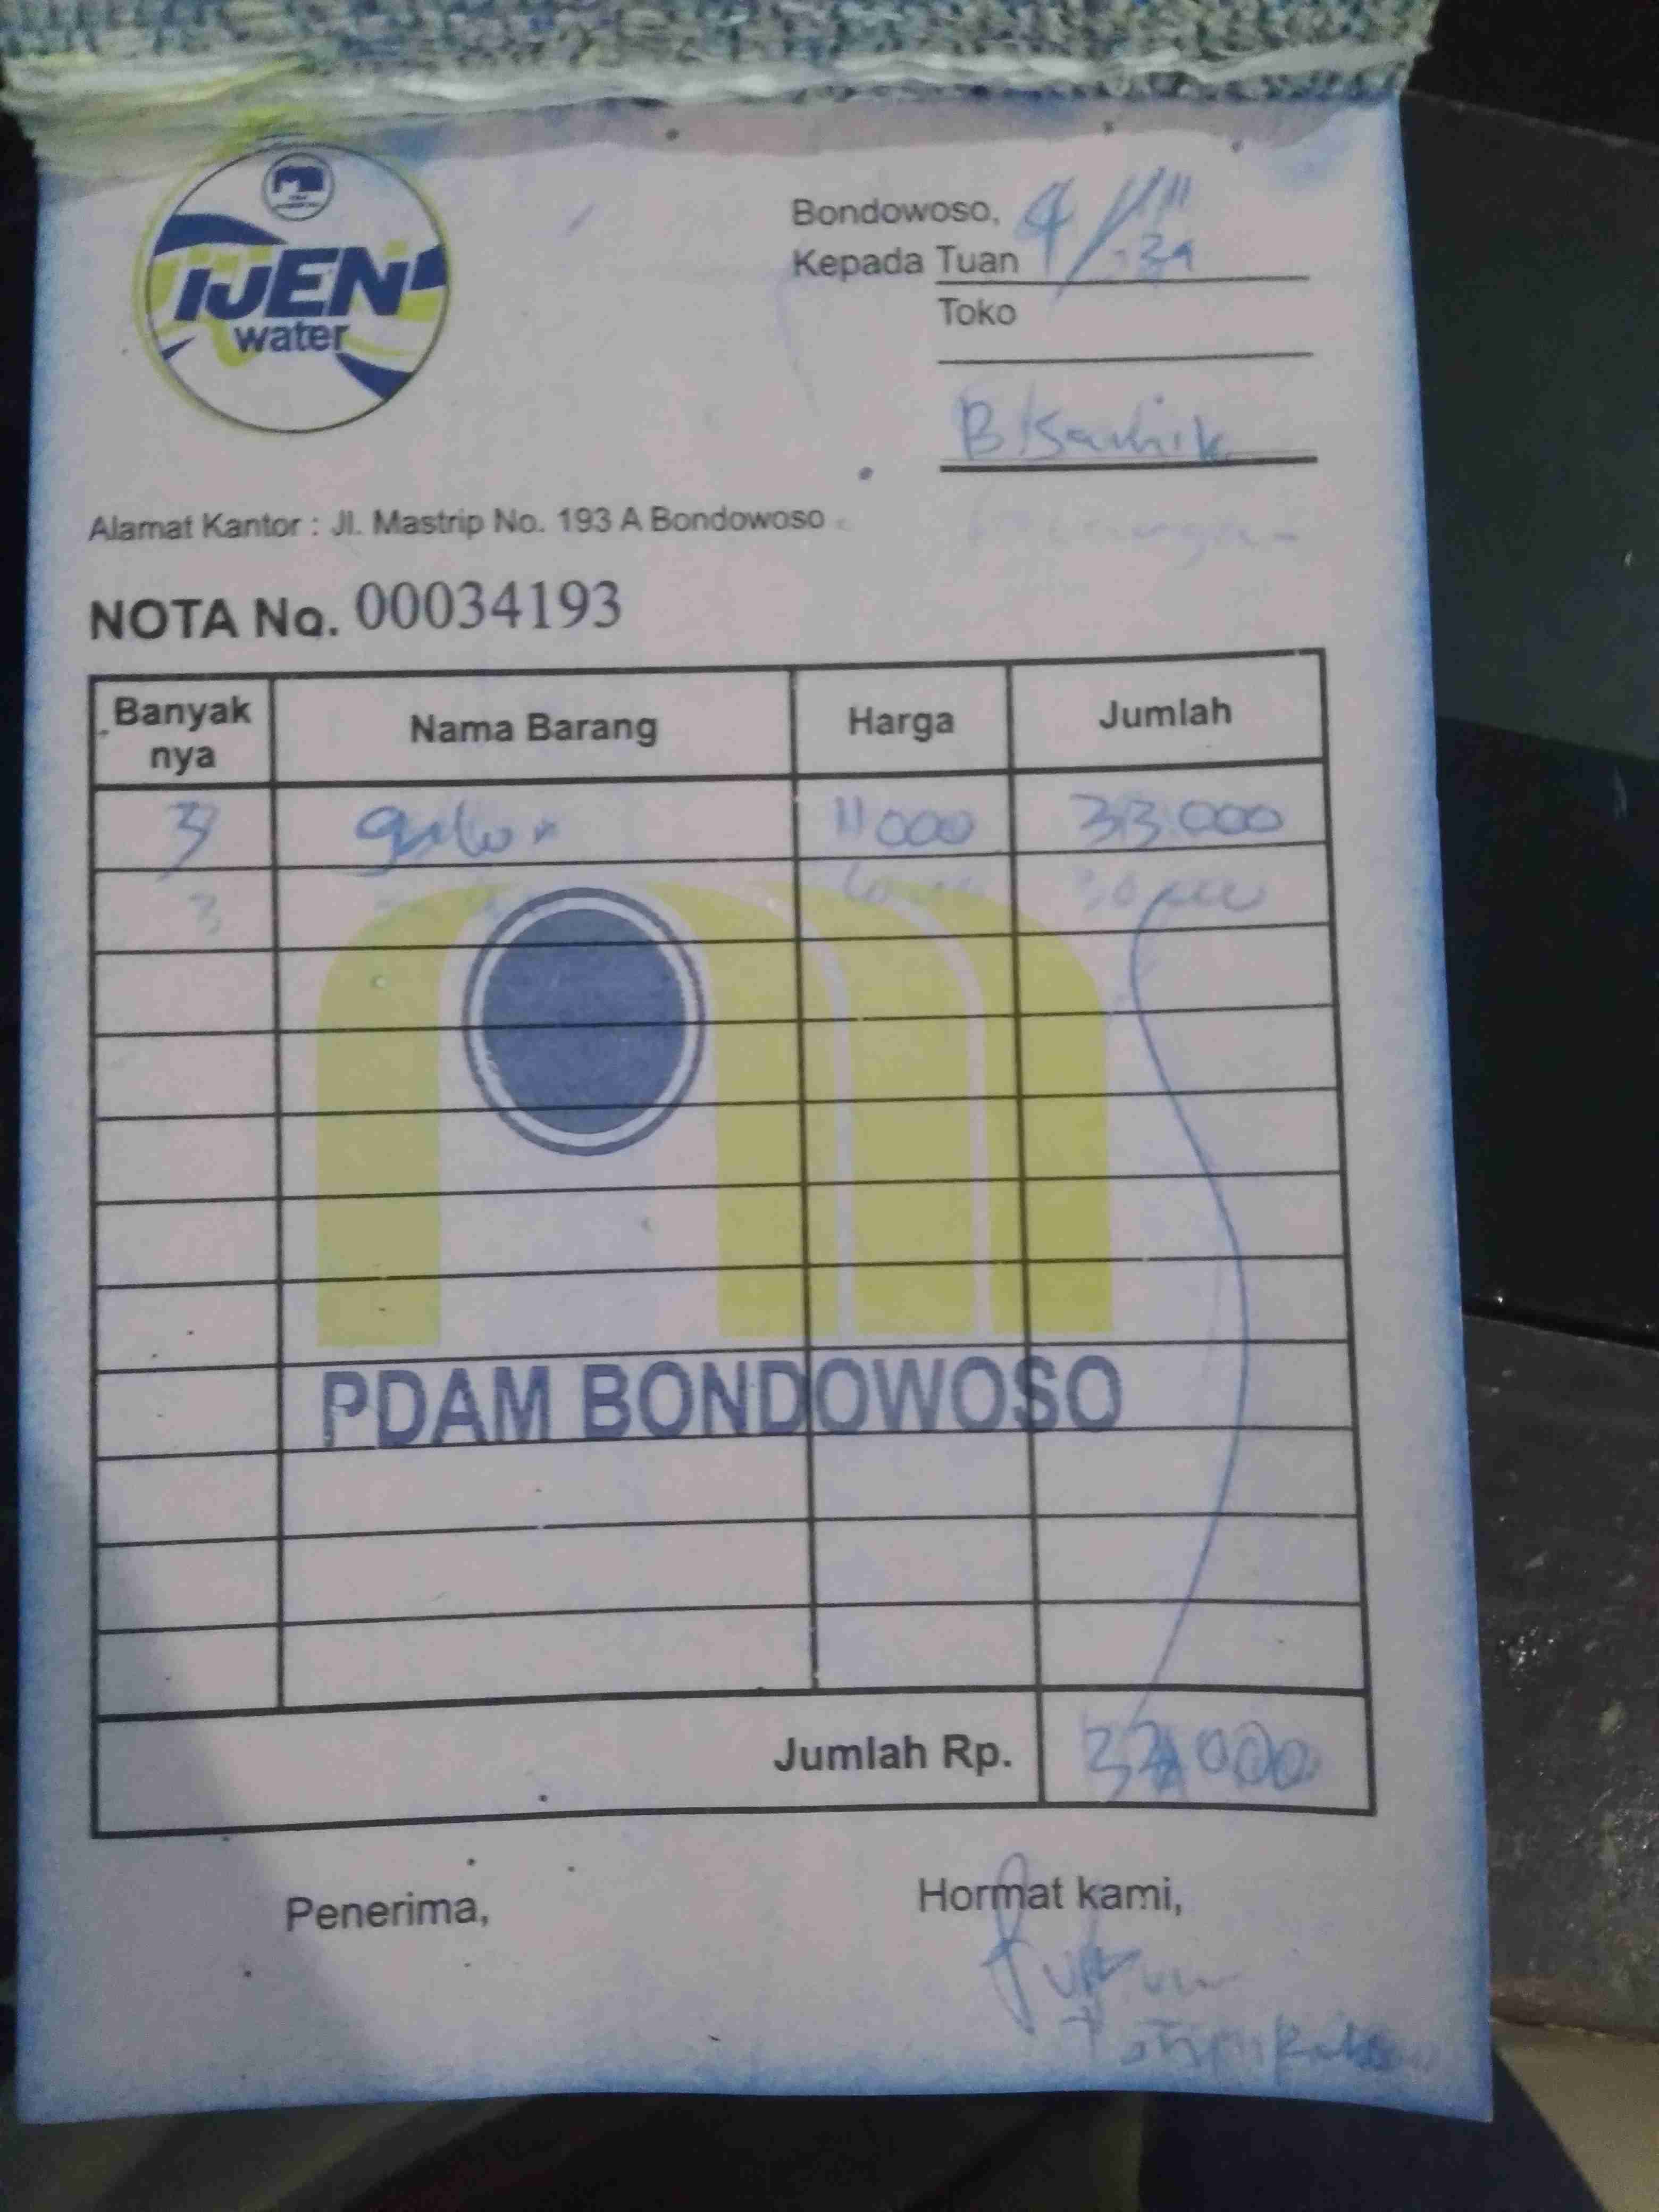 IJEN
water
Bondowoso, 4/11
Kepada Tuan
Toko
Alamat Kantor : Jl. Mastrip No. 193 A Bondowoso
NOTA No. 00034193
Banyak nya Nama Barang Harga Jumlah
3 galon 11000 33.000
3 30.000
PDAM BONDOWOSO
Jumlah Rp. 33000
Penerima, Hormat kami,